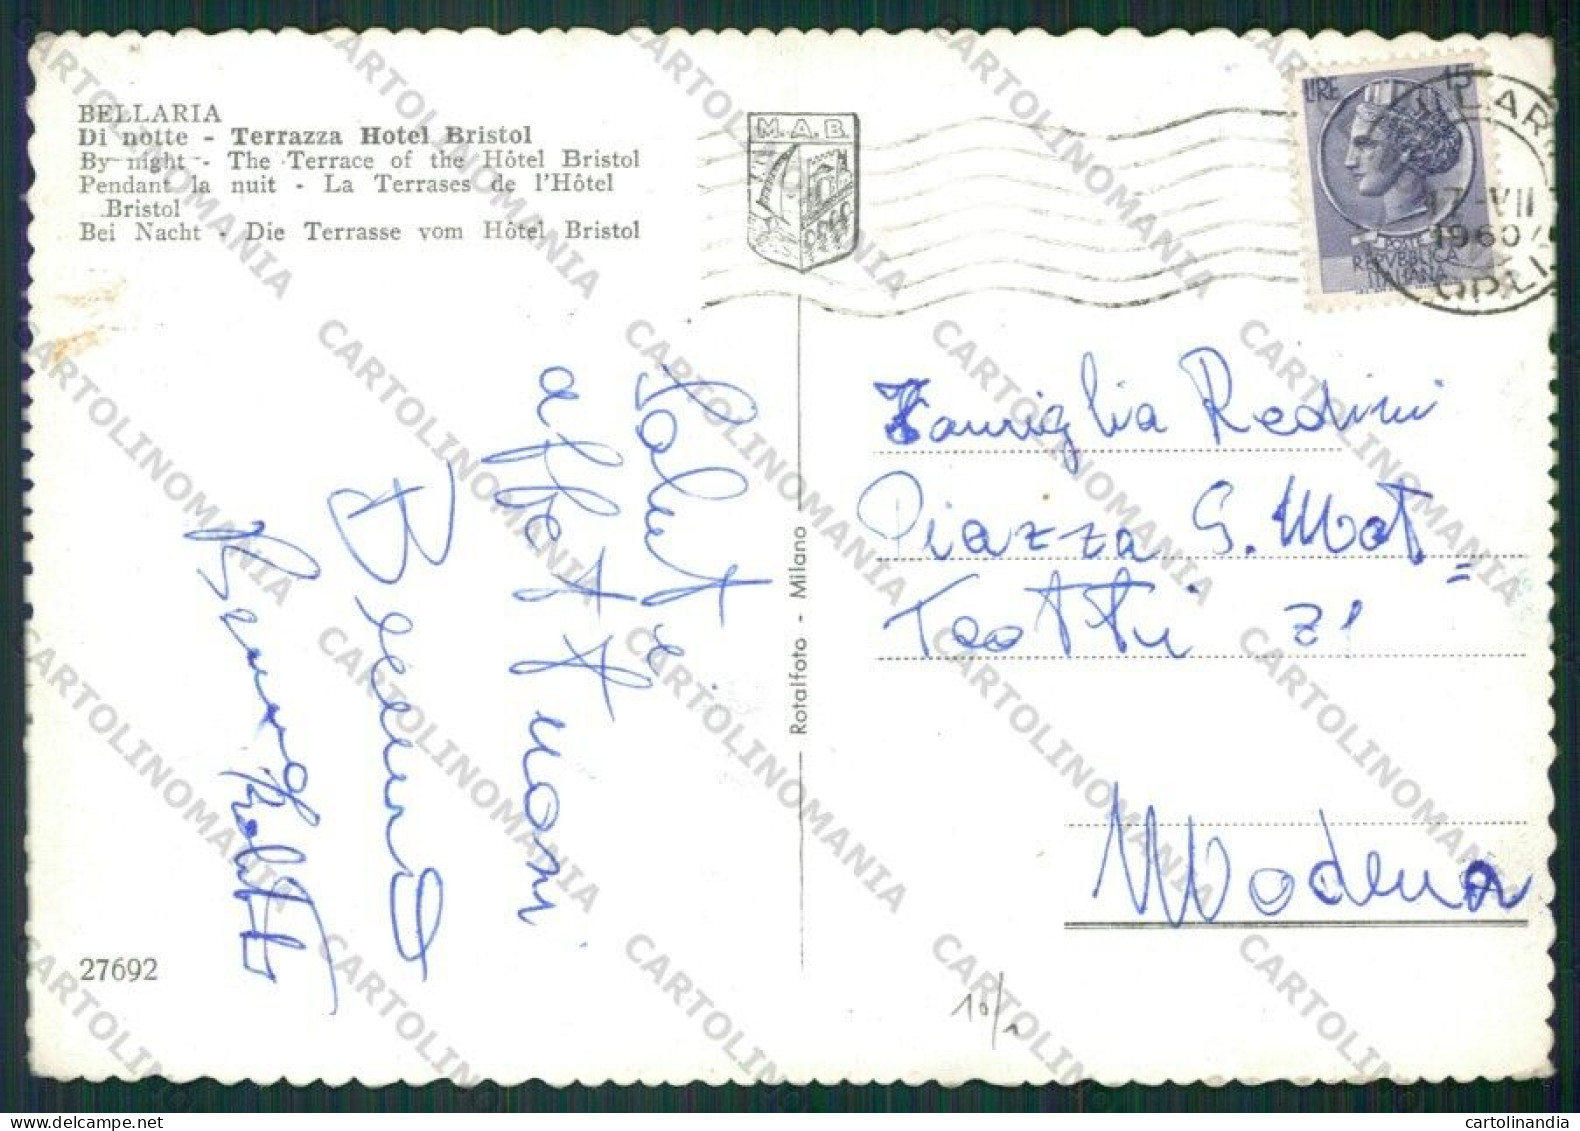 BELLARIA
Di notte - Terrazza Hotel Bristol
By night - The Terrace of the Hôtel Bristol
Pendant la nuit - La Terrases de l'Hôtel
Bristol
Bei Nacht - Die Terrasse vom Hôtel Bristol
M.A.B.
LIRE 15
POSTE
REPVBBLICA
ITALIANA
17-VII
1960
Famiglia Redini
Piazza G. Mat=
teotti 21
Modena
Saluti e
affettuosi
Rotalfoto - Milano
27692
10/
CARTOLINOMANIA
cartolinandia